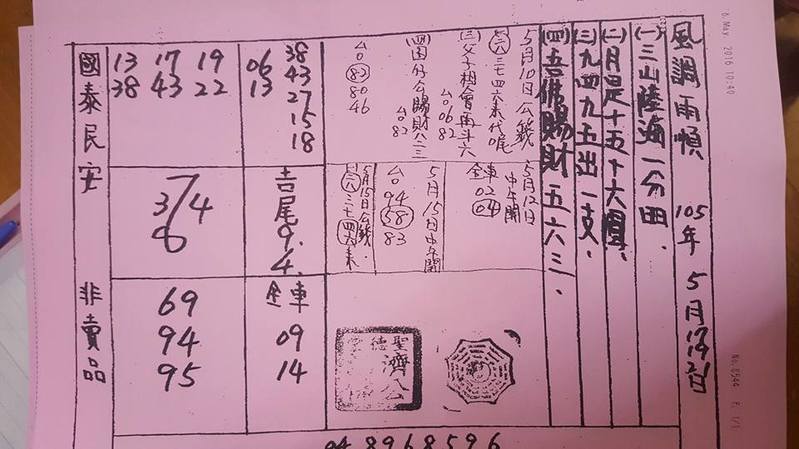 6. May 2016 10:40
No. 0544 P. 1/1
風調雨順 105年 5月17 19 21日
(一)三山陸海一分田、
(二)月是十五十六圓、
(三)九四九五出一支、
(四)吾佛賜財五六三、
5月10日公錢
三六三七四六來代尾
(三)父子相會再斗六
台06 82
(四)国分公賜財八三
台82
台83 80 46
5月12日中午開
全車 02 04
5月15日中午開
台 94 58 83
5月15日公錢
三六三七四六來
38
06 43
13 27
15
18
13 17 19
38 43 22
吉尾9.4.
7
3 4
6
全車
09
14
69
94
95
聖德
濟公
國泰民安 非賣品
04 8968596